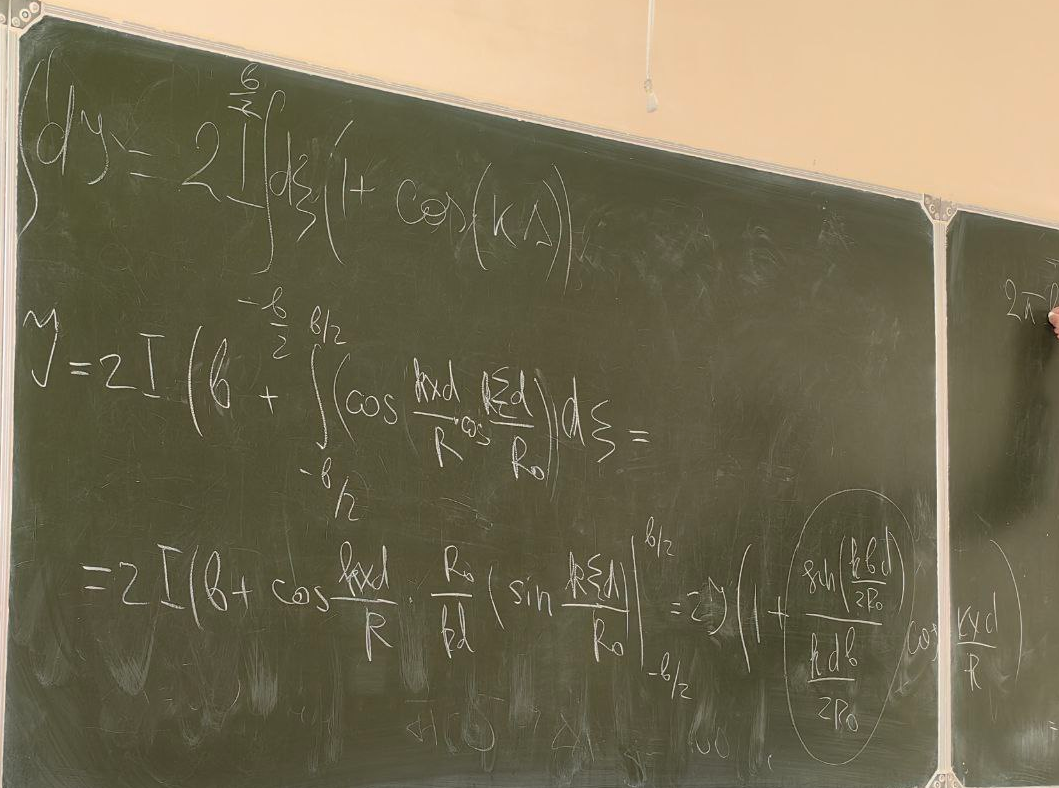 ∫dy = 2I∫_{-b/2}^{b/2} dξ(1 + cos(kΔ))
Y = 2I(b + ∫_{-b/2}^{b/2} (cos kxd/R cos kξd/R₀) dξ =
= 2I(b + cos kxd/R · R₀/kd (sin kξd/R₀)|_{-b/2}^{b/2} = 2Y(1 + sin(kbd/2R₀)/(kdb/2R₀) cos kxd/R)
2π